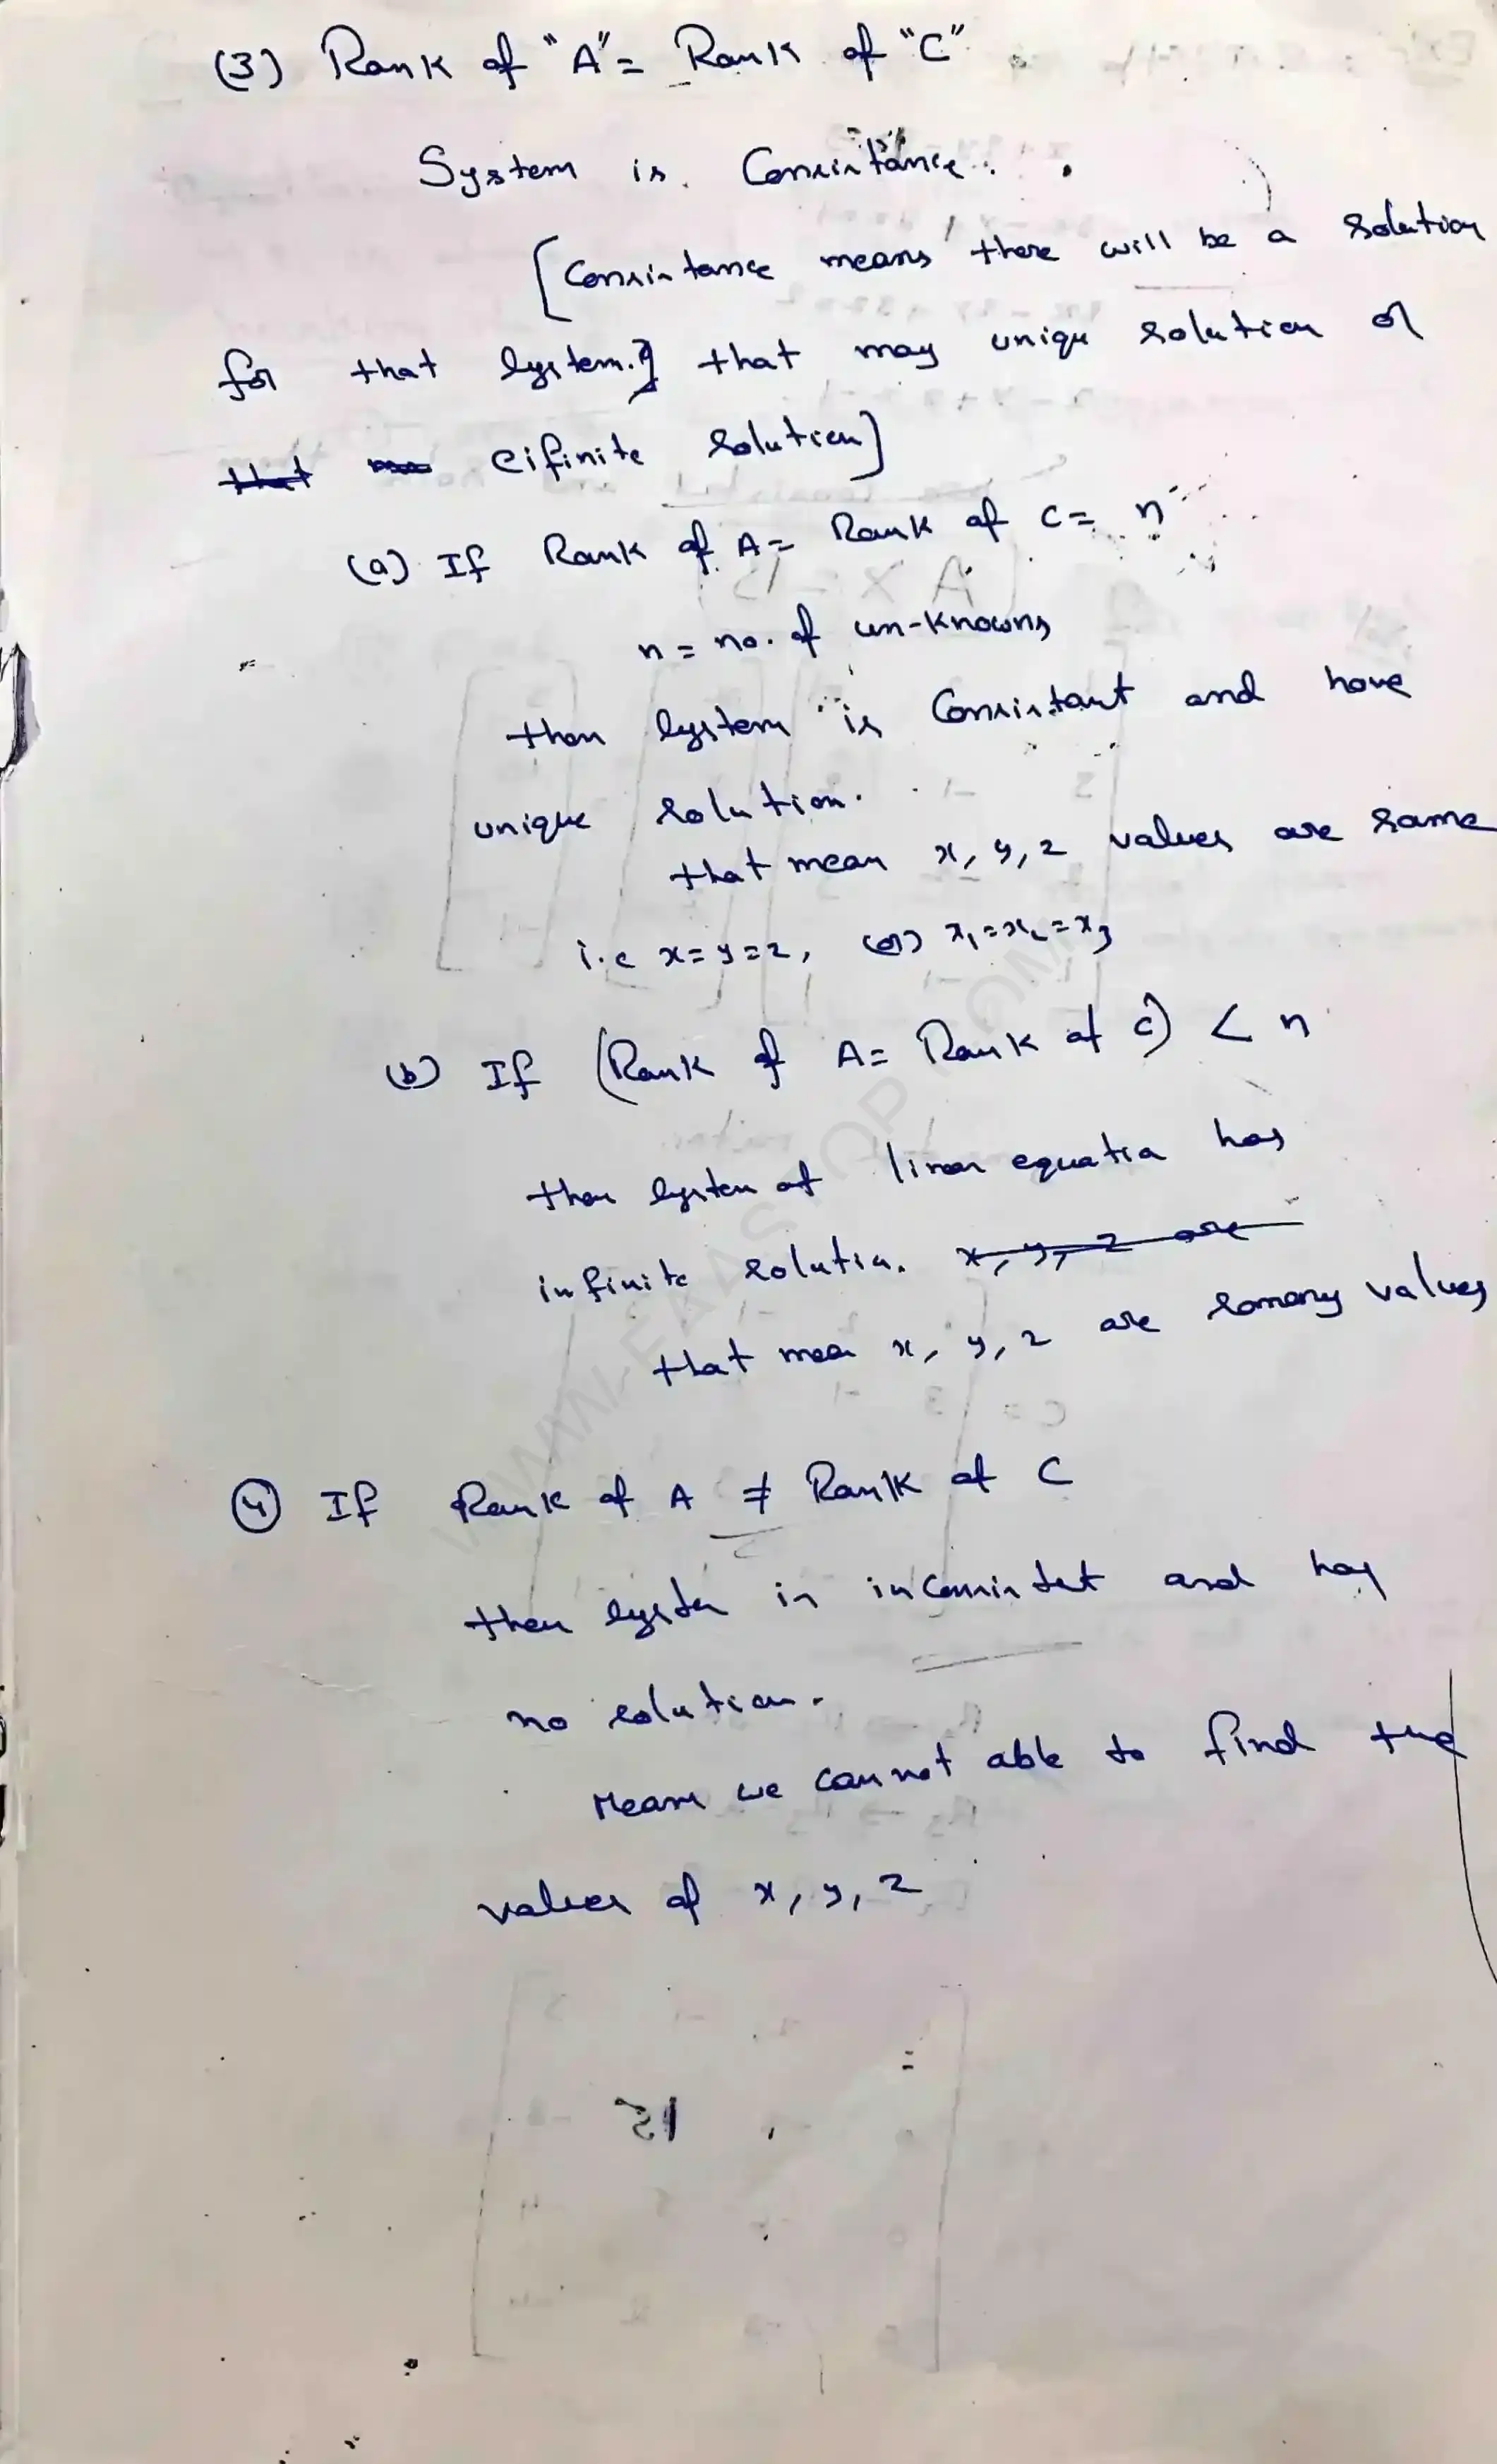 (3) Rank of "A" = Rank of "C"
System is Consistance.
[Consistance means there will be a solution
for that system.] that may unique solution or
that eifinite solution]
(a) If Rank of A = Rank of C = n
n = no. of un-knowns
then system is Consistant and have
unique solution.
that mean x, y, z values are same
i.e x = y = z, (or) x₁ = x₂ = x₃
(b) If (Rank of A = Rank of C) < n
then system of linear equatia has
infinite solutia. x, y, z are
that mea x, y, z are somany values
④ If Rank of A ≠ Rank of C
then syste is inconsistet and has
no solution.
Means we cannot able to find the
values of x, y, z